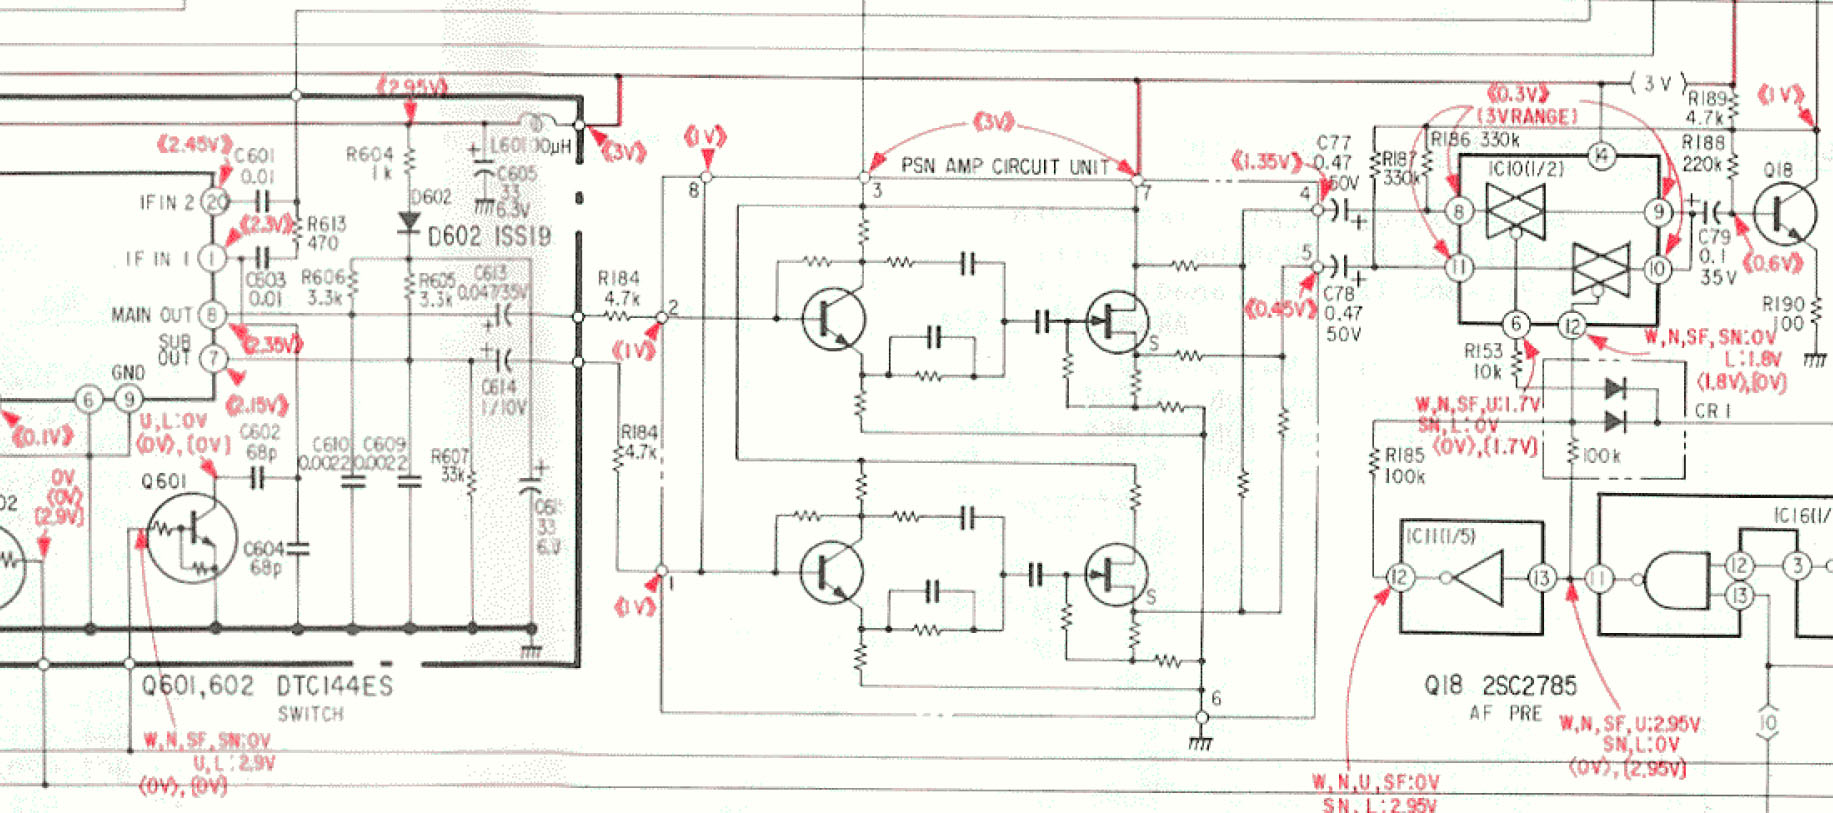 《2.95V》
( 3 V )
《0.3V》
(3VRANGE)
R189
4.7k
《1V》
《2.45V》
C601
0.01
R604
1k
L601
00μH
《3V》
《1V》
《3V》
PSN AMP CIRCUIT UNIT
C77
0.47
50V
《1.35V》
R187
330k
R186 330k
14
R188
220k
Q18
IC10(1/2)
C605
33
6.3V
D602
D602 1SS19
IF IN 2
20
《2.3V》
R613
470
IF IN 1
1
C603
0.01
R606
3.3k
R605
3.3k
C613
0.047/35V
8
3
7
4
5
8
9
11
10
C79
0.1
35V
《0.6V》
MAIN OUT
8
《2.35V》
SUB
OUT
7
R184
4.7k
2
《1V》
S
《0.45V》
C78
0.47
50V
6
12
R190
100
W,N,SF,SN:0V
L:1.8V
(1.8V),[0V]
R153
10k
GND
6
9
《2.15V》
C614
1/10V
《0.1V》
U,L:0V
(0V),[0V]
C602
68p
C610
0.0022
C609
0.0022
R607
33k
R184
4.7k
W,N,SF,U:1.7V
SN,L:0V
(0V),[1.7V]
CR1
R185
100k
100k
0V
(0V)
[2.9V]
02
Q601
33
C604
68p
IC11(1/5)
IC16(1/
12
13
11
12
13
3
1
《1V》
S
6
Q601,602 DTC144ES
SWITCH
Q18 2SC2785
AF PRE
10
W,N,SF,SN:0V
U,L:2.9V
(0V),[0V]
W,N,SF,U:2.95V
SN,L:0V
(0V),[2.95V]
W,N,U,SF:0V
SN,L:2.95V